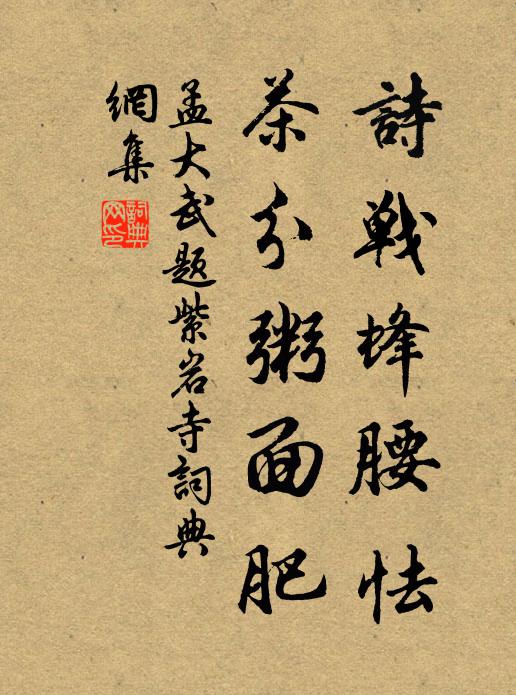 詩戰蜂腰怯
茶分粥面肥
孟大武題紫岩寺詞典
網集
詞典
网印